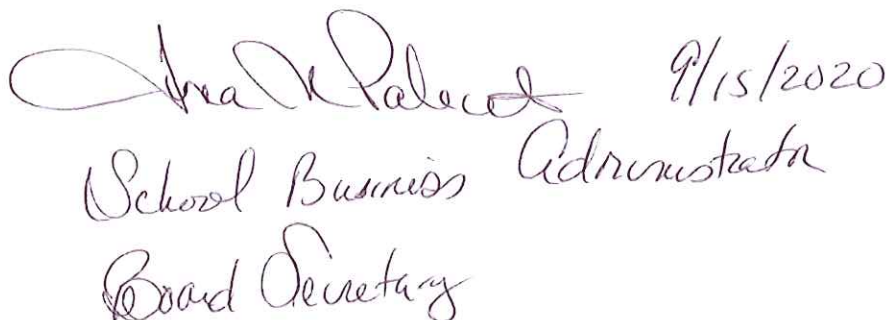 9/15/2020
School Business Administrator
Board Secretary